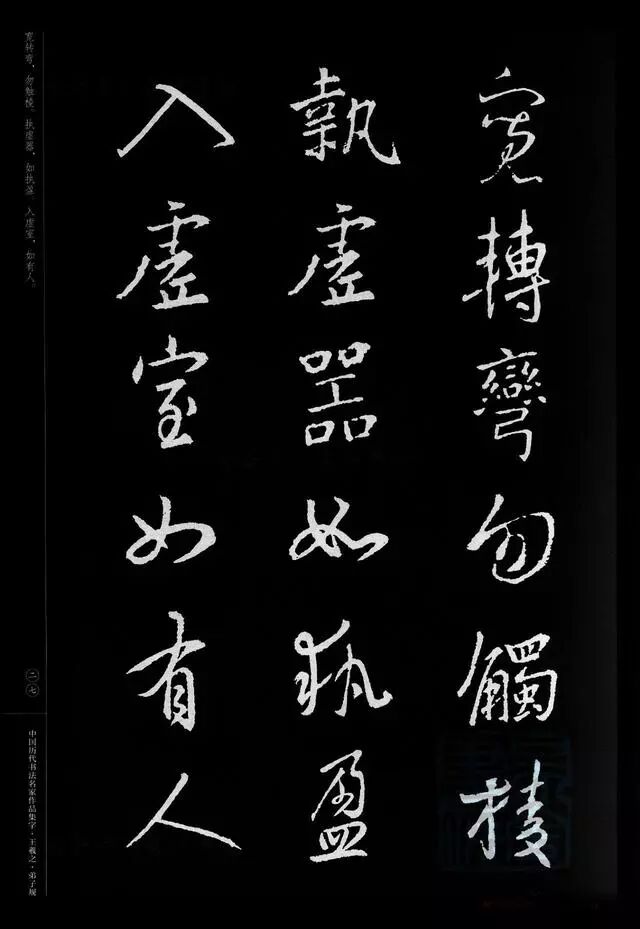 寬轉彎勿觸棱
執虛器如執盈
入虛室如有人
宽转弯，勿触棱。执虚器，如执盈。入虚室，如有人。
二七
中国历代书法名家作品集字·王羲之·弟子规